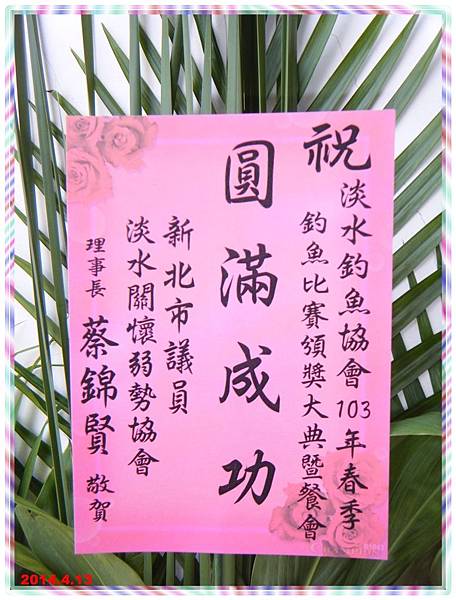 祝
淡水釣魚協會103年春季
釣魚比賽頒獎大典暨餐會
圓滿成功
新北市議員
淡水關懷弱勢協會
理事長 蔡錦賢 敬賀
2014.4.13